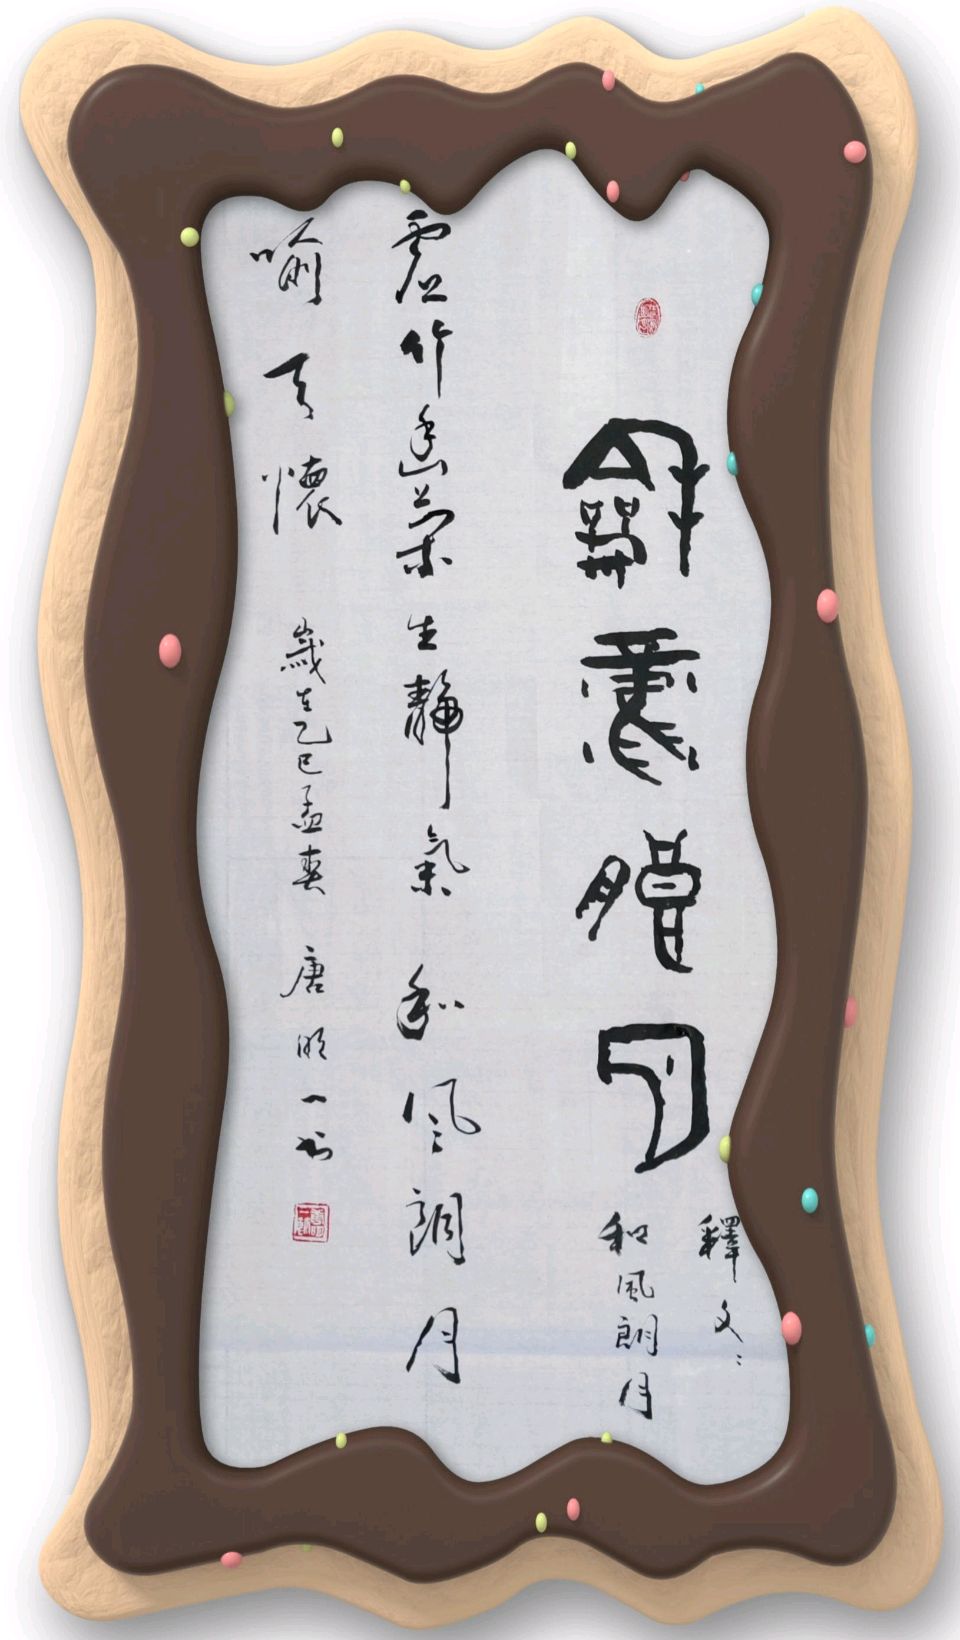 龢風朗月
釋文:
和風朗月
虛竹幽蘭生靜氣和風朗月
喻天懷 歲在乙巳孟夏 唐明一書